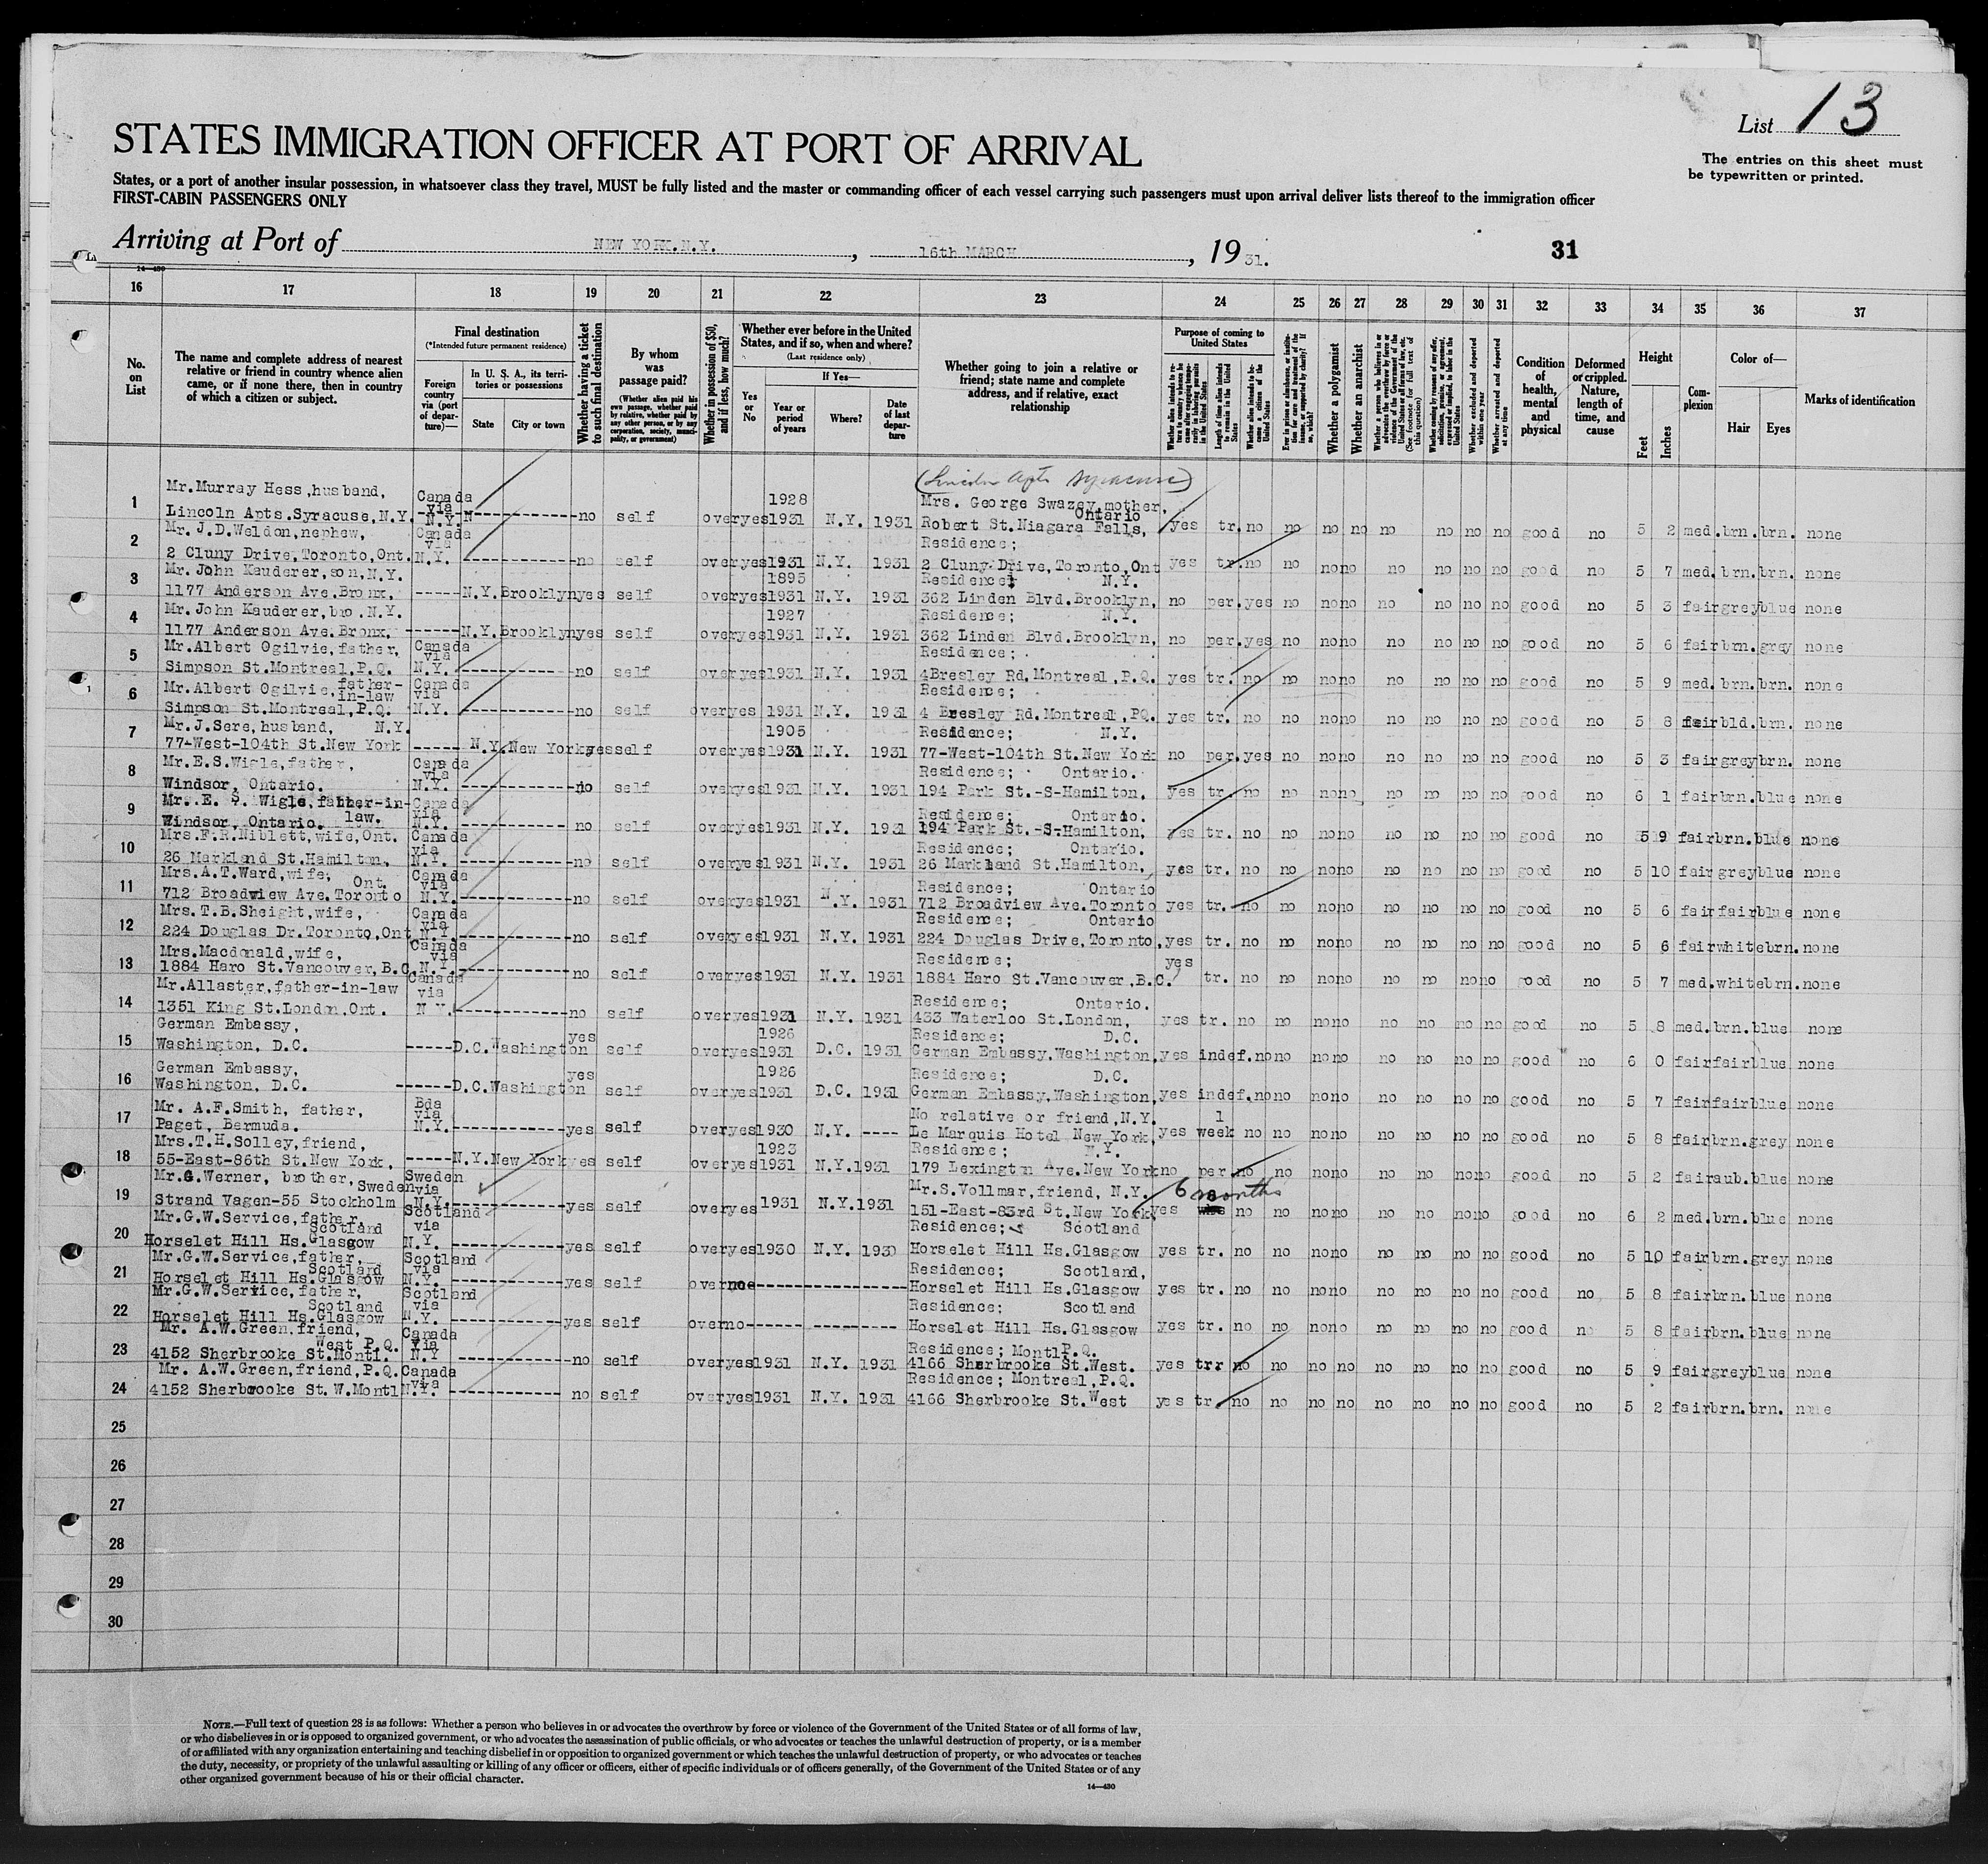 List 13
The entries on this sheet must
be typewritten or printed.
STATES IMMIGRATION OFFICER AT PORT OF ARRIVAL
States, or a port of another insular possession, in whatsoever class they travel, MUST be fully listed and the master or commanding officer of each vessel carrying such passengers must upon arrival deliver lists thereof to the immigration officer
FIRST-CABIN PASSENGERS ONLY
Arriving at Port of NEW YORK.N.Y. , 16th MARCH , 19 31. 31
14—430
16 17 18 19 20 21 22 23 24 25 26 27 28 29 30 31 32 33 34 35 36 37
No. on List
The name and complete address of nearest relative or friend in country whence alien came, or if none there, then in country of which a citizen or subject.
Final destination
(*Intended future permanent residence)
Foreign country via (port of departure)—
In U. S. A., its territories or possessions
State City or town
Whether having a ticket to such final destination
By whom was passage paid?
(Whether alien paid his own passage, whether paid by relative, whether paid by any other person, or by any corporation, society, municipality, or government)
Whether in possession of $50, and if less, how much?
Whether ever before in the United States, and if so, when and where?
(Last residence only)
Yes or No
If Yes—
Year or period of years
Where?
Date of last departure
Whether going to join a relative or friend; state name and complete address, and if relative, exact relationship
Purpose of coming to United States
Length of time alien intends to remain in the United States
Whether alien intends to become a citizen of the United States
Whether a polygamist
Whether an anarchist
Whether excluded and deported within one year
Whether arrested and deported at any time
Condition of health, mental and physical
Deformed or crippled. Nature, length of time, and cause
Height
Feet Inches
Complexion
Color of—
Hair Eyes
Marks of identification
(Lincoln Apts Syracuse)
1 Mr.Murray Hess,husband, Canada via 1928 Mrs. George Swazey,mother, Ontario
Lincoln Apts.Syracuse,N.Y. N.Y. N no self over yes 1931 N.Y. 1931 Robert St.Niagara Falls, yes tr. no no no no no no no no good no 5 2 med. brn. brn. none
2 Mr.J.D.Weldon,nephew, Canada via Residence;
2 Cluny Drive,Toronto,Ont. N.Y. no self over yes 1931 N.Y. 1931 2 Cluny Drive,Toronto,Ont yes tr. no no no no no no no no good no 5 7 med. brn. brn. none
3 Mr.John Kauderer,son,N.Y. 1895 Residence; N.Y.
1177 Anderson Ave.Bronx, N.Y. Brooklyn yes self over yes 1931 N.Y. 1931 362 Linden Blvd.Brooklyn, no per. yes no no no no no no no good no 5 3 fair grey blue none
4 Mr.John Kauderer,bro.N.Y. 1927 Residence; N.Y.
1177 Anderson Ave.Bronx, N.Y. Brooklyn yes self over yes 1931 N.Y. 1931 362 Linden Blvd.Brooklyn, no per. yes no no no no no no no good no 5 6 fair brn. grey none
5 Mr.Albert Ogilvie,father, Canada via Residence;
Simpson St.Montreal,P.Q. N.Y. no self over yes 1931 N.Y. 1931 4Bresley Rd,Montreal,P.Q. yes tr. no no no no no no no no good no 5 9 med. brn. brn. none
6 Mr.Albert Ogilvie,father-in-law Canada via Residence;
Simpson St.Montreal,P.Q. N.Y. no self over yes 1931 N.Y. 1931 4 Bresley Rd.Montreal,PQ. yes tr. no no no no no no no no good no 5 8 fair bld. brn. none
7 Mr.J.Sere,husband, N.Y. 1905 Residence; N.Y.
77-West-104th St.New York N.Y. New York yes self over yes 1931 N.Y. 1931 77-West-104th St.New York no per. yes no no no no no no no good no 5 3 fair grey brn. none
8 Mr.E.S.Wigle,father, Canada via Residence; Ontario.
Windsor, Ontario. N.Y. no self over yes 1931 N.Y. 1931 194 Park St.-S-Hamilton. yes tr. no no no no no no no no good no 6 1 fair brn. blue none
9 Mr. E. S. Wigle,father-in-law. Canada via Residence; Ontario.
Windsor, Ontario. N.Y. no self over yes 1931 N.Y. 1931 194 Park St.-S-Hamilton, yes tr. no no no no no no no no good no 5 9 fair brn. blue none
10 Mrs.F.R.Niblett,wife,Ont. Canada via Residence; Ontario.
26 Markland St.Hamilton, N.Y. no self over yes 1931 N.Y. 1931 26 Markland St.Hamilton, yes tr. no no no no no no no no good no 5 10 fair grey blue none
11 Mrs.A.T.Ward,wife, Ont. Canada via Residence; Ontario
712 Broadview Ave.Toronto N.Y. no self over yes 1931 N.Y. 1931 712 Broadview Ave.Toronto yes tr. no no no no no no no no good no 5 6 fair fair blue none
12 Mrs.T.B.Sheight,wife, Canada via Residence; Ontario
224 Douglas Dr.Toronto,Ont N.Y. no self over yes 1931 N.Y. 1931 224 Douglas Drive,Toronto, yes tr. no no no no no no no no good no 5 6 fair white brn. none
13 Mrs.Macdonald,wife, Canada via Residence; yes
1884 Haro St.Vancouver,B.C. N.Y. no self over yes 1931 N.Y. 1931 1884 Haro St.Vancouver,B.C. tr. no no no no no no no no good no 5 7 med. white brn. none
14 Mr.Allaster,father-in-law Canada via Residence; Ontario.
1351 King St.London,Ont. N.Y. no self over yes 1931 N.Y. 1931 433 Waterloo St.London, yes tr. no no no no no no no no good no 5 8 med. brn. blue none
15 German Embassy, yes 1926 Residence; D.C.
Washington, D.C. D.C. Washington self over yes 1931 D.C. 1931 German Embassy,Washington, yes indef. no no no no no no no no good no 6 0 fair fair blue none
16 German Embassy, yes 1926 Residence; D.C.
Washington, D.C. D.C. Washington self over yes 1931 D.C. 1931 German Embassy,Washington, yes indef. no no no no no no no no good no 5 7 fair fair blue none
17 Mr. A.F.Smith, father, Bda via No relative or friend,N.Y. 1
Paget, Bermuda. N.Y. yes self over yes 1930 N.Y. ---- Le Marquis Hotel New York, yes week no no no no no no no no good no 5 8 fair brn. grey none
18 Mrs.T.H.Solley,friend, 1923 Residence; N.Y.
55-East-86th St.New York, N.Y. New York yes self over yes 1931 N.Y. 1931 179 Lexington Ave.New York no per no no no no no no no no good no 5 2 fair aub. blue none
19 Mr.G.Werner, brother, Sweden Sweden via Mr.S.Vollmar,friend, N.Y. 6 months
Strand Vagen-55 Stockholm N.Y. yes self over yes 1931 N.Y. 1931 151-East-83rd St.New York, yes no no no no no no no no good no 6 2 med. brn. blue none
20 Mr.G.W.Service,father, Scotland Scotland via Residence; Scotland
Horselet Hill Hs.Glasgow N.Y. yes self over yes 1930 N.Y. 1930 Horselet Hill Hs.Glasgow yes tr. no no no no no no no no good no 5 10 fair brn. grey none
21 Mr.G.W.Service,father, Scotland Scotland via Residence; Scotland,
Horselet Hill Hs.Glasgow N.Y. yes self over no Horselet Hill Hs.Glasgow yes tr. no no no no no no no no good no 5 8 fair brn. blue none
22 Mr.G.W.Service,father, Scotland Scotland via Residence; Scotland
Horselet Hill Hs.Glasgow N.Y. yes self over no Horselet Hill Hs.Glasgow yes tr. no no no no no no no no good no 5 8 fair brn. blue none
23 Mr. A.W.Green,friend, West P.Q. Canada via Residence; Montl P.Q.
4152 Sherbrooke St.Montl. N.Y no self over yes 1931 N.Y. 1931 4166 Sherbrooke St.West. yes trr no no no no no no no no good no 5 9 fair grey blue none
24 Mr. A.W.Green,friend,P.Q. Canada via Residence; Montreal,P.Q.
4152 Sherbrooke St.W.Montl N.Y. no self over yes 1931 N.Y. 1931 4166 Sherbrooke St.West yes tr. no no no no no no no no good no 5 2 fair brn. brn. none
25
26
27
28
29
30
NOTE.—Full text of question 28 is as follows: Whether a person who believes in or advocates the overthrow by force or violence of the Government of the United States or of all forms of law,
or who disbelieves in or is opposed to organized government, or who advocates the assassination of public officials, or who advocates or teaches the unlawful destruction of property, or is a member
of or affiliated with any organization entertaining and teaching disbelief in or opposition to organized government or which teaches the unlawful destruction of property, or who advocates or teaches
the duty, necessity, or propriety of the unlawful assaulting or killing of any officer or officers, either of specific individuals or of officers generally, of the Government of the United States or of any
other organized government because of his or their official character.
14—430